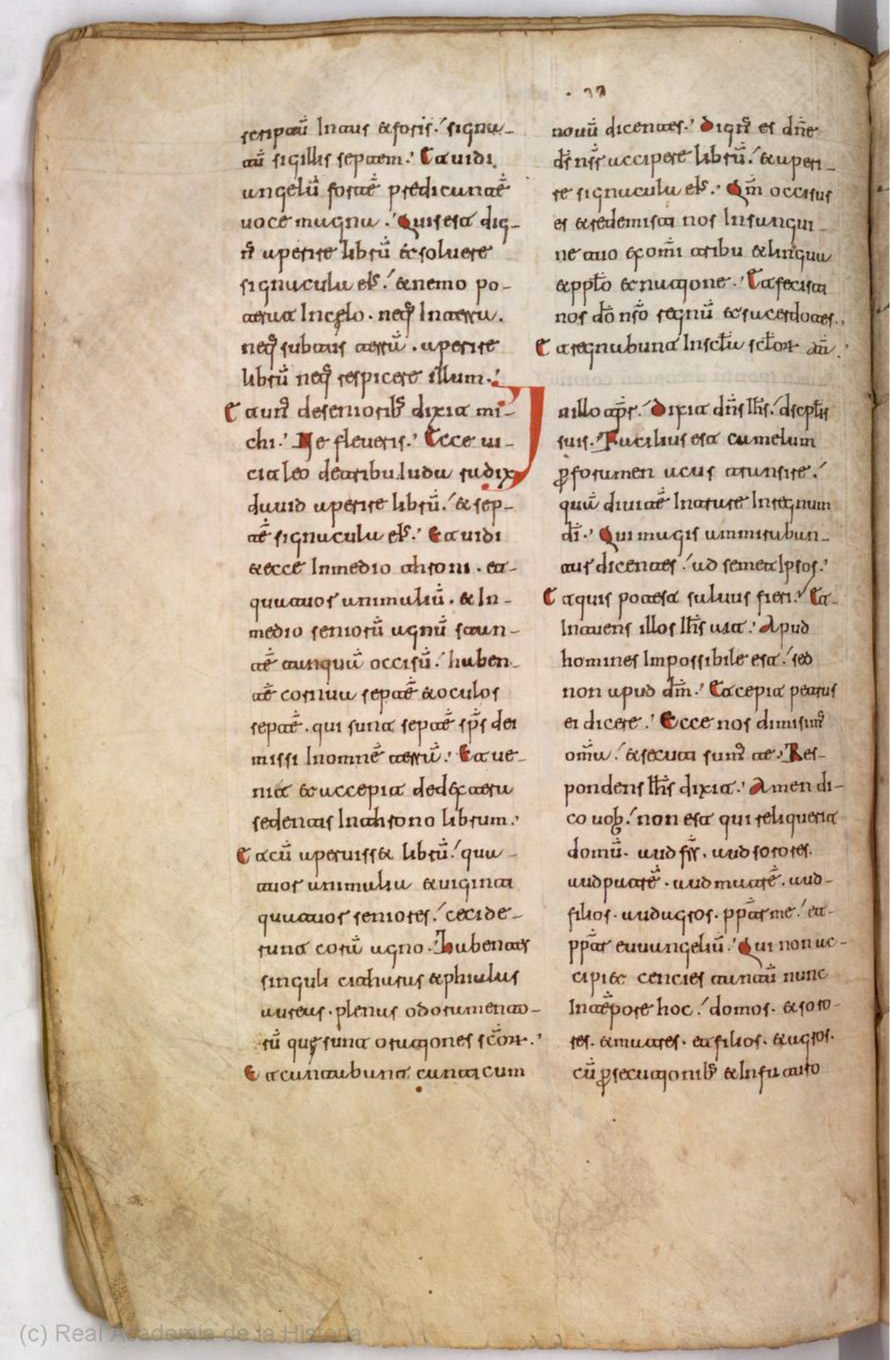 scriptū Intus &foris. signa-
tū sigillis septem. Et uidi
angelū fortē predicantē
uoce magna. Quis est dig-
nꝰ aperire librū & soluere
signacula eiꝰ. & nemo po-
terat In celo. neqꝫ In terra.
neqꝫ subtus terrū. aperire
librū neqꝫ respicere illum.
Et unꝰ de seniorib; dixit mi-
chi. Ne fleueris. Ecce ui-
cit leo de tribu Iuda radix
dauid aperire librū. & sep-
tē signacula eiꝰ. Et uidi
& ecce In medio throni. et
quatuor animaliū. & In
medio seniorū agnū stan-
tē tanquā occisū. haben-
tē cornua septē & oculos
septē. qui sunt septē sp̄s dei
missi In omnē terrā. Et ue-
nit & accepit de dextera
sedentis In throno librum.
Et cū aperuiss& librū. qua-
tuor animalia & uiginti
quatuor seniores. cecide-
runt corā agno. habentes
singuli citharas & phialas
aureas. plenas odoramento-
rū quę sunt orationes sc̄oꝝ.
Et cantabant canticum
nouū dicentes. Dignꝰ es dn̄e
ds̄ nsr̄ accipere librū. & aperi-
re signacula eiꝰ. Qm̄ occisus
es & redemisti nos In sangui-
ne tuo ex om̄i tribu & lingua
& pplō & natione. Et fecisti
nos dō nr̄o regnū & sacerdotes.
Et regnabunt In sc̄la sc̄loꝝ am̄.
In illo tp̄r. Dixit dn̄s Ihs̄. discplis
suis. Facilius est camelum
ꝑ foramen acus transire.
quā diuitē Intrare In regnum
dī. Qui magis ammiraban-
tur dicentes. ad semet Ipsos.
Et quis potest saluus fieri. Et
Intuens illos Ihs̄ ait. Apud
homines Impossibile est. sed
non apud dm̄. Et cepit petrus
ei dicere. Ecce nos dimisimꝰ
om̄a. & secuti sumꝰ te. Res-
pondens Ihs̄ dixit. Amen di-
co uob̄. non est qui reliquerit
domū. aud frs̄. aud sorores.
aud patrē. aud matrē. aud
filios. aud agros. ppt̄ me. et
ppt̄ euuangeliū. Qui non ac-
cipi&. centies tantū nunc
In tēpore hoc. domos. & soro-
res. & matres. et filios. & agros.
cū ꝑsecutionib; & In futuro